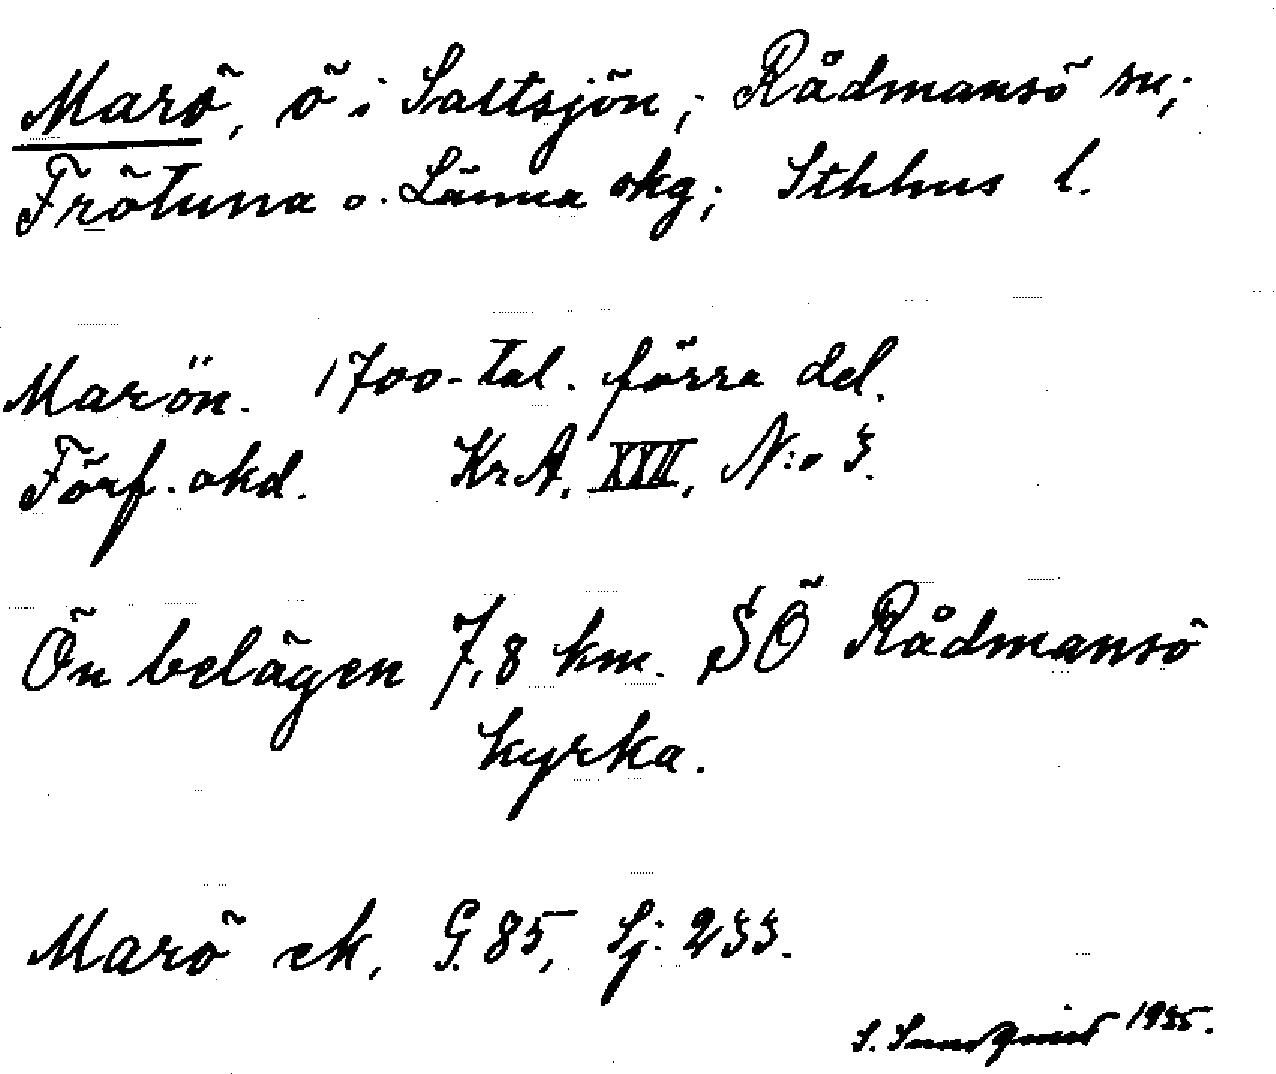 Marö, ö i Saltsjön; Rådmansö sn;
Frötuna o. Länna skg; Sthlms l.
Marön. 1700-tal. förra del.
Förf. okd. KrA, XVII, N:o 3.
Ön belägen 7,8 km. SÖ Rådmansö
kyrka.
Marö ek, G. 85, Sj: 233.
S. Sundqvist 1935.